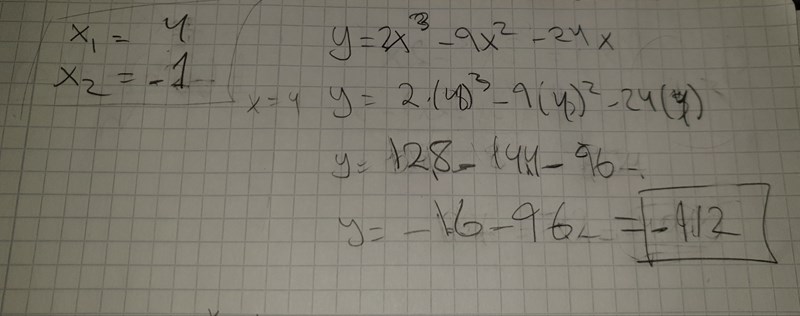 x₁ = 4
x₂ = -1
y = 2x³ - 9x² - 24x
x = 4
y = 2·(4)³ - 9(4)² - 24(4)
y = 128 - 144 - 96
y = -16 - 96 = -112